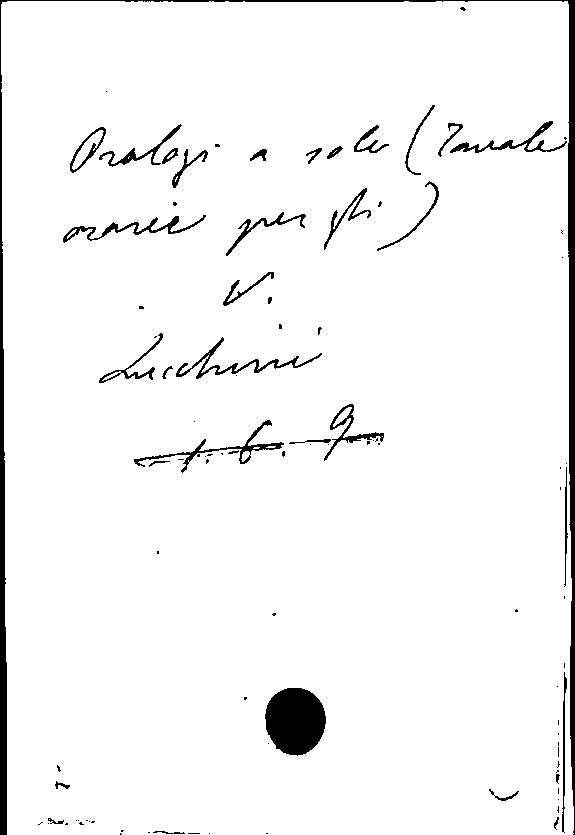 Orologi a sole (Tavole
orarie per gli)
V.
Lucchini
1. 6. 9